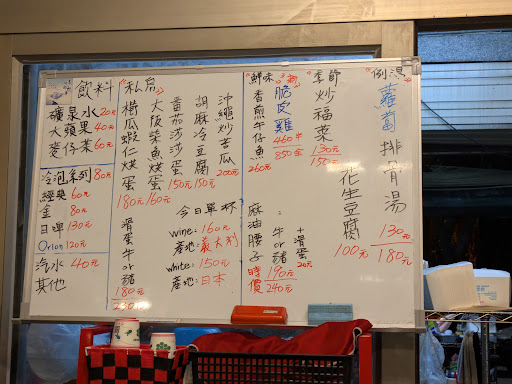 飲料
礦泉水 20元
大蘋果 40元
麥仔茶 60元
冷泡系列 80元
經典 60元
金 80元
日啤 130元
Orion 120元
汽水 40元
其他
私房
櫛瓜蝦仁烘蛋
180元
大阪柴魚烘蛋
160元
番茄莎莎蛋
150元
胡麻冷豆腐
150元
沖繩炒苦瓜
200元
滑蛋牛or豬
180元
230元
今日單杯
wine: 160元
產地: 義大利
white: 150元
產地: 日本
鮮味
香煎午仔魚
260元
脆皮雞
460半
850全
季節
炒福菜
130元
150元
例湯
蘿蔔排骨湯
130元
180元
花生豆腐
100元
麻油腰子
時價
牛or豬
190元
240元
+滑蛋
20元